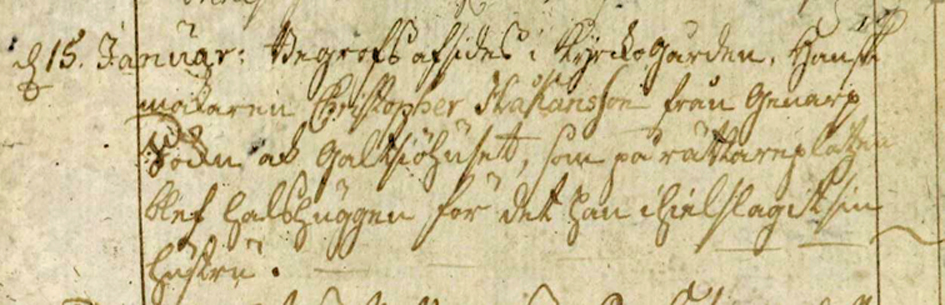 d 15. Januar: Begrofs afsides i Kyrckogården, Handsk
makaren Christopher Håkansson från Genarp
Sockn af Galtsjöhuset, som på rättareplatsen
blef halshuggen för det han ihielslagit sin
hustru.